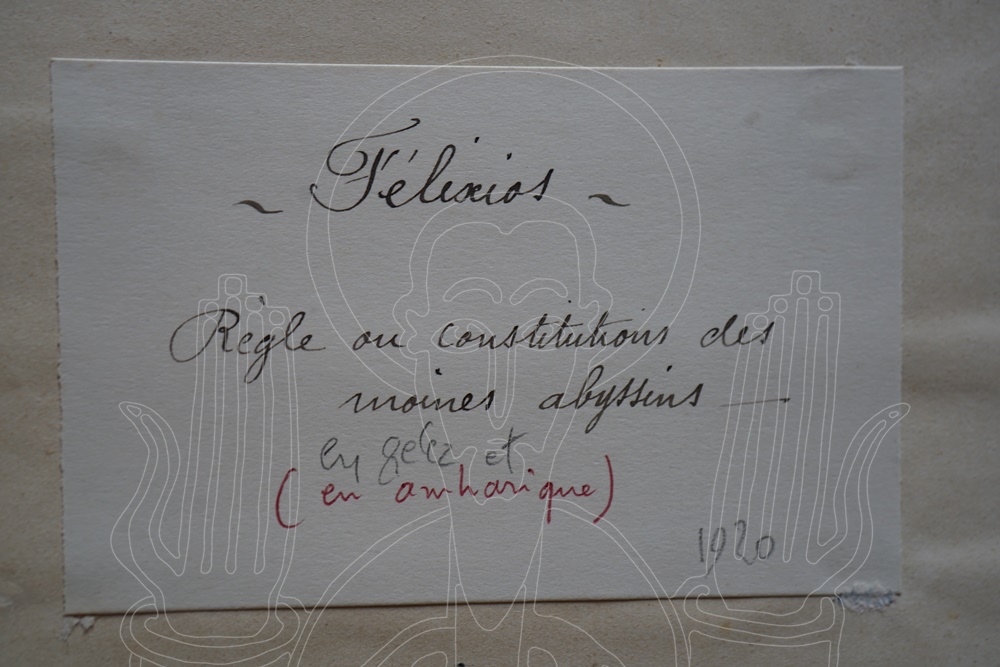 ~ Félixios ~
Règle ou constitutions des
moines abyssins —
en geéz et
(en amharique)
1920